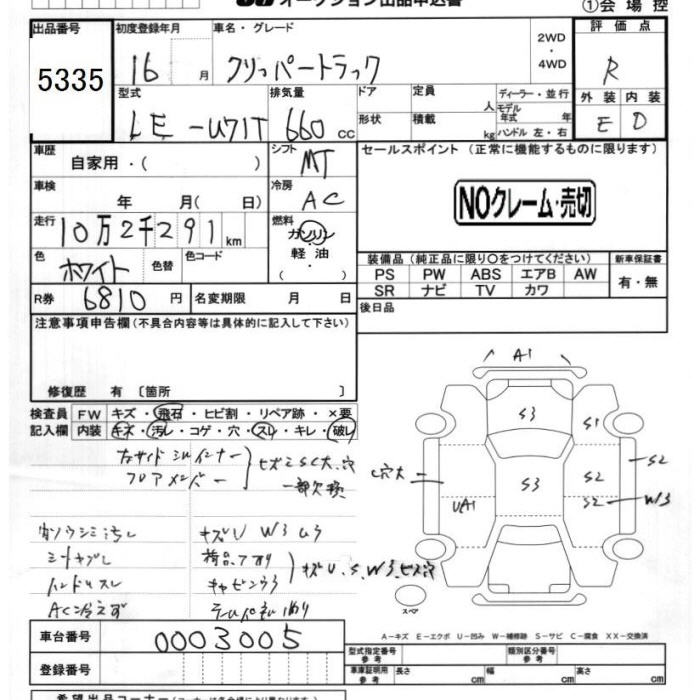 オークション出品申込書
①会場控
出品番号 初度登録年月 車名・グレード 評価点
5335
16 月 クリッパートラック 2WD・4WD R
型式 排気量 ドア 定員 人 ディーラー・並行 外装 内装
LE-U71T 660 cc 形状 積載 kg モデル年式 年 ハンドル 左・右 E D
車歴 自家用・( ) シフト MT セールスポイント (正常に機能するものに限ります)
車検 年 月( 日) 冷房 AC
NOクレーム・売切
走行 10万2千291 km 燃料 ガソリン・軽油・( )
色 ホワイト 色替 色コード
装備品 (純正品に限り○をつけてください) 新車保証書
PS PW ABS エアB AW 有・無
SR ナビ TV カワ
R券 6810 円 名変期限 月 日 後日品
注意事項申告欄 (不具合内容等は具体的に記入して下さい)
修復歴 有 [箇所 ]
検査員 FW キズ・飛石・ヒビ割・リペア跡・×要
記入欄 内装 キズ・汚レ・コゲ・穴・スレ・キレ・破レ
フロアメンバー
一部欠損
シートヤブレ
ハンドルスレ
AC冷えず
キズU W3
A1
S3 S1
C穴大 S3 S2 S2
UA1 S2 W3
スペア
A-キズ E-エクボ U-凹み W-補修跡 S-サビ C-腐食 XX-交換済
車台番号 0003005
型式指定番号 参考 類別区分番号 参考
登録番号 車庫証明用 参考 長さ cm 幅 cm 高さ cm
希望出品コーナー